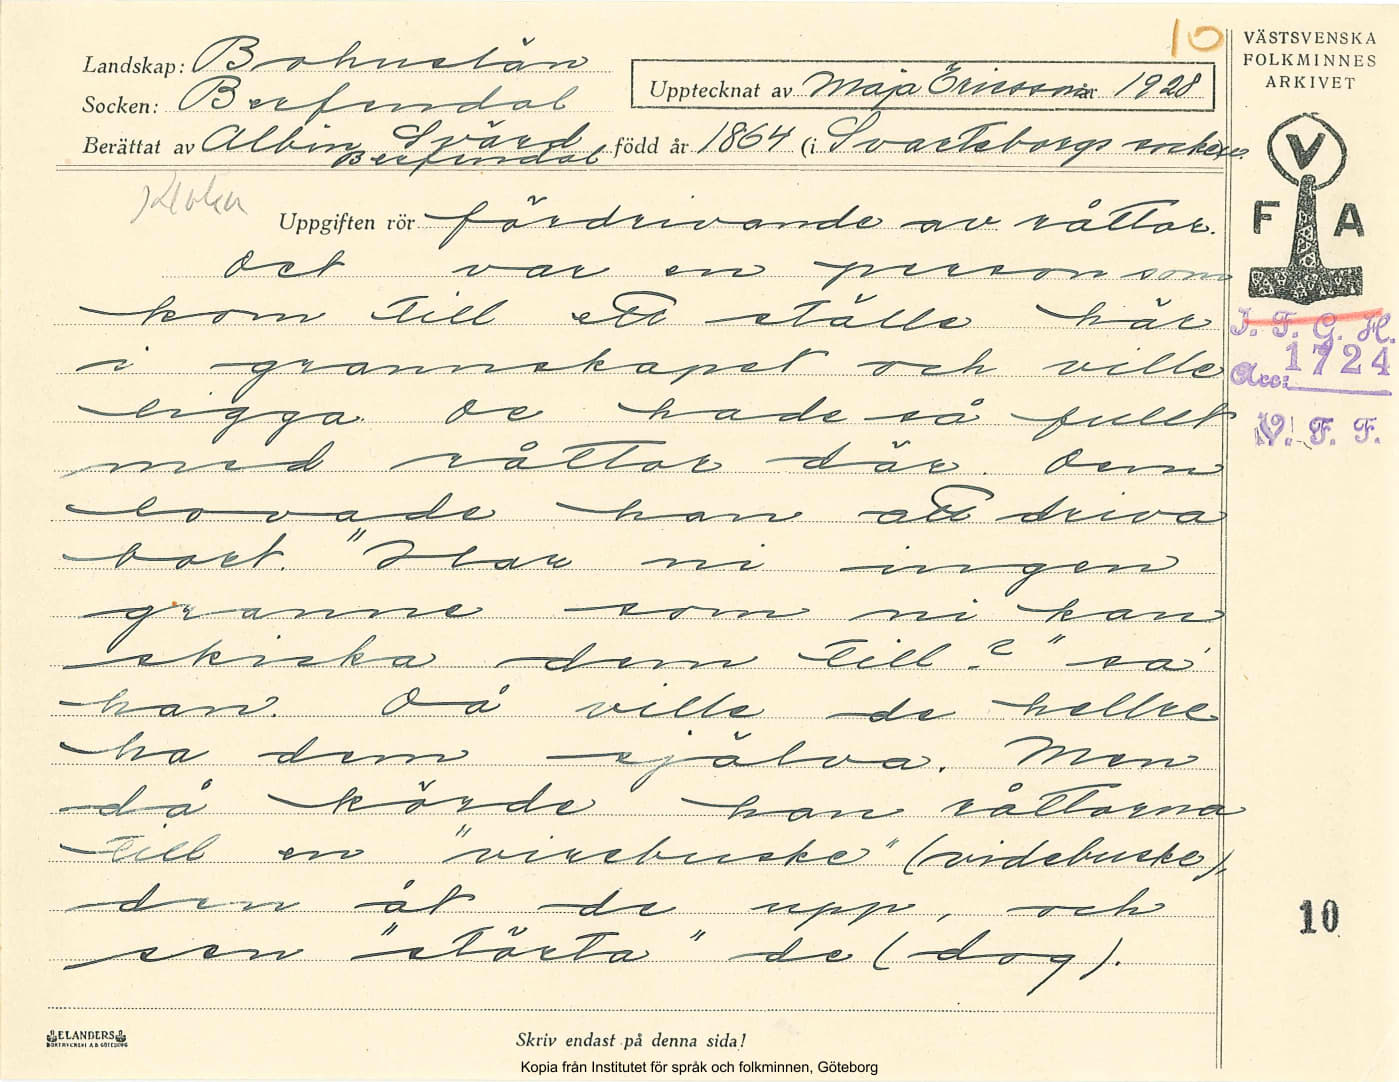 10
VÄSTSVENSKA
FOLKMINNES
ARKIVET
Landskap: Bohuslän
Socken: Berfendal
Upptecknat av Maja Ericsson år 1928
Berättat av Albin Svärd född år 1864 (i Svarteborgs socken.
Berfendal
Kloka
Uppgiften rör fördrivande av råttor.
V
F A
Det var en person som
kom till ett ställe här
i grannskapet och ville
ligga. De hade så fullt
med råttor där. Dem
lovade han att driva
bort. "Har ni ingen
granne som ni kan
skicka dem till?" sa
han. Då ville de hellre
ha dem själva. Men
då körde han råttorna
till en "virebuske" (videbuske),
den åt de upp, och
sen "störta" de (dog).
I. F. G. H.
Acc: 1724
V. F. F.
10
ELANDERS
BOKTRYCKERI A.B. GÖTEBORG
Skriv endast på denna sida!
Kopia från Institutet för språk och folkminnen, Göteborg